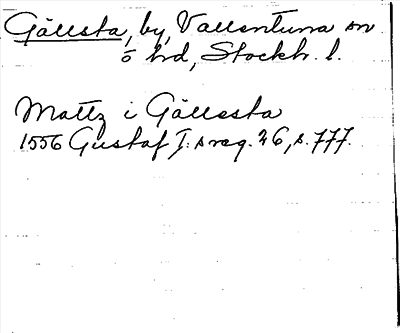 Gällsta, by, Vallentuna sn
o hd, Stockh. l.
Mattz i Gällesta
1556 Gustaf I:s reg. 26, s. 777.